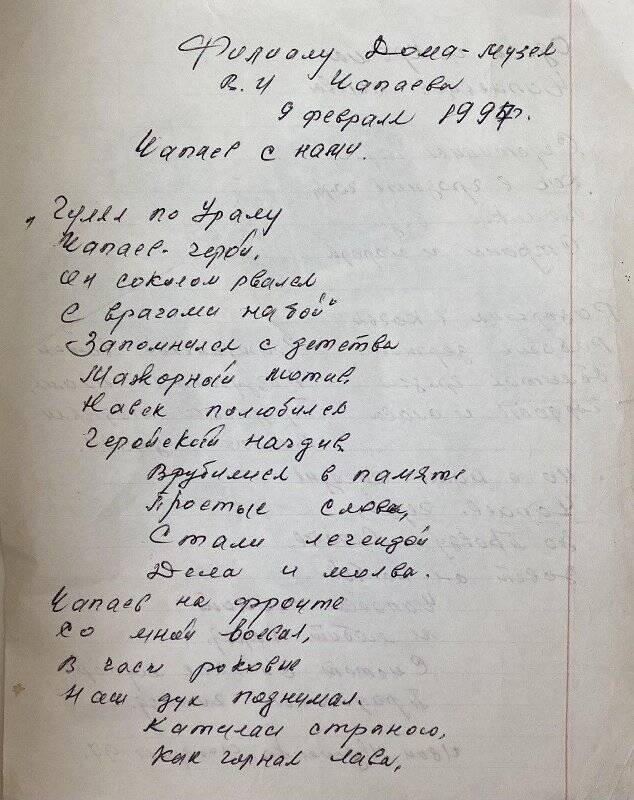 Филиалу Дома-музея
В. И Чапаева
9 февраля 1997г.
Чапаев с нами.
„Гулял по Уралу
Чапаев-герой,
Он соколом рвался
С врагами на бой"
Запомнился с детства
Мажорный мотив,
Навек полюбился
Геройский начдив
Врубились в память
Простые слова,
Стали легендой
Дела и молва.
Чапаев на фронте
Со мной воевал,
В часы роковые
Наш дух поднимал.
Катилась страною,
Как горная лава,